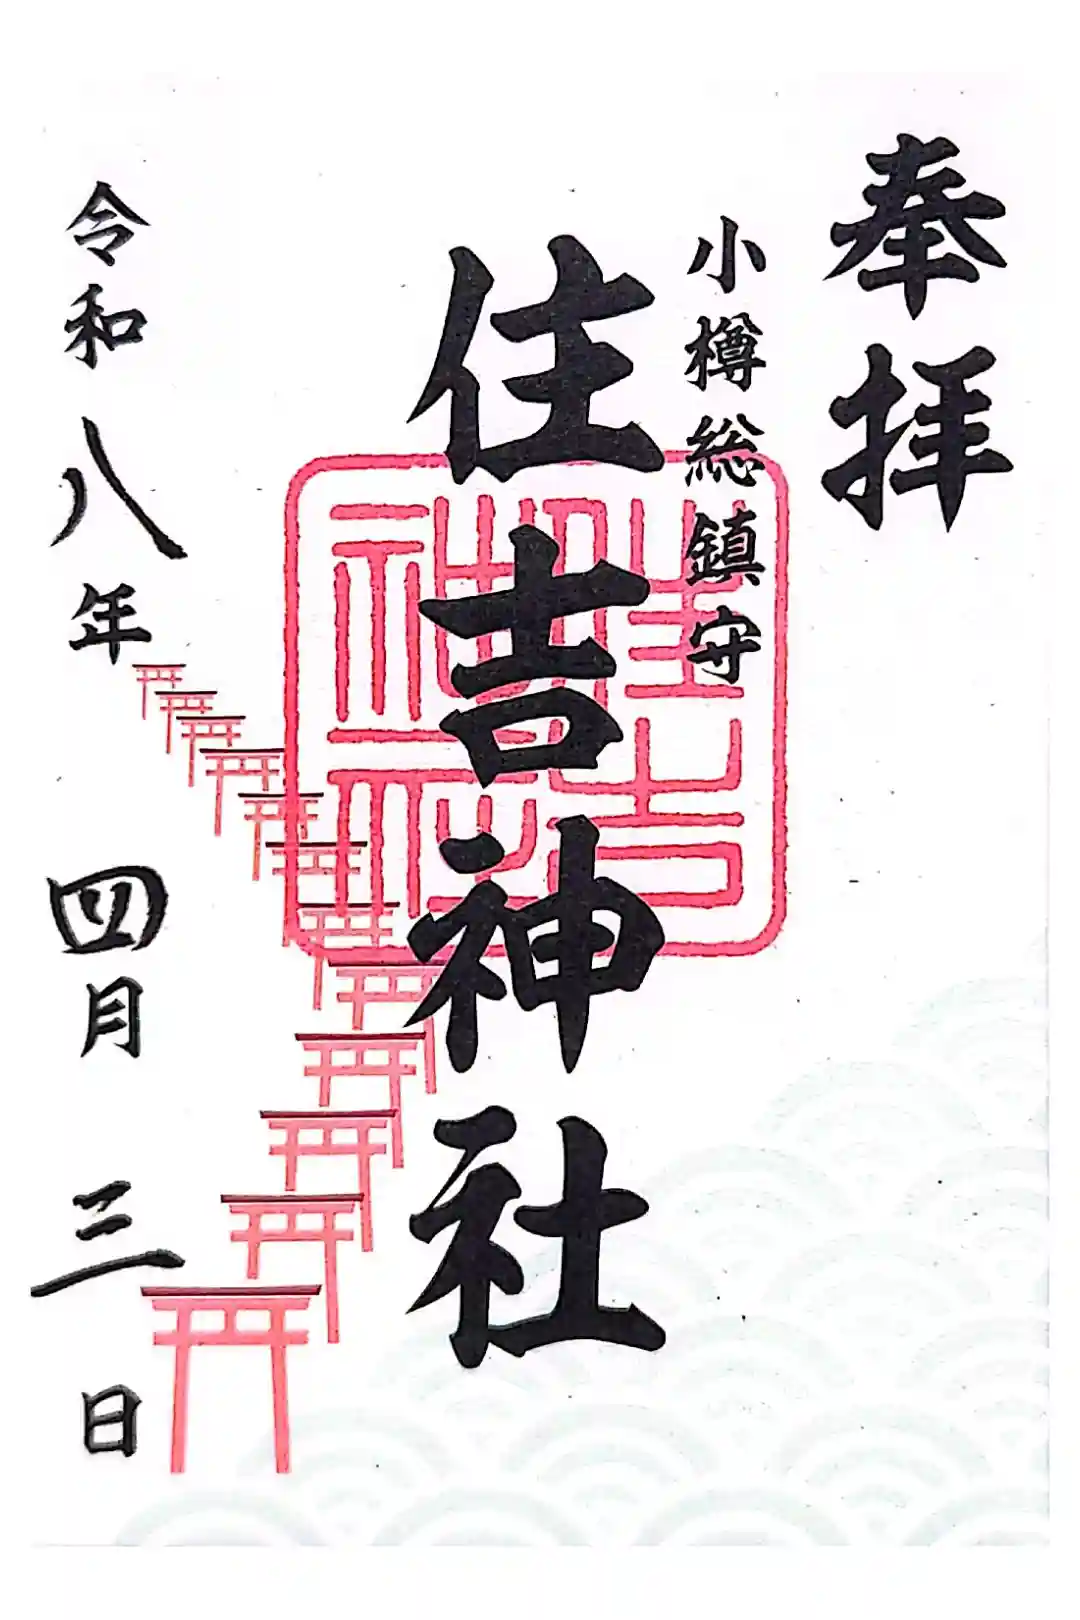 奉拝
小樽総鎮守
住吉神社
住吉神社印
令和八年四月三日